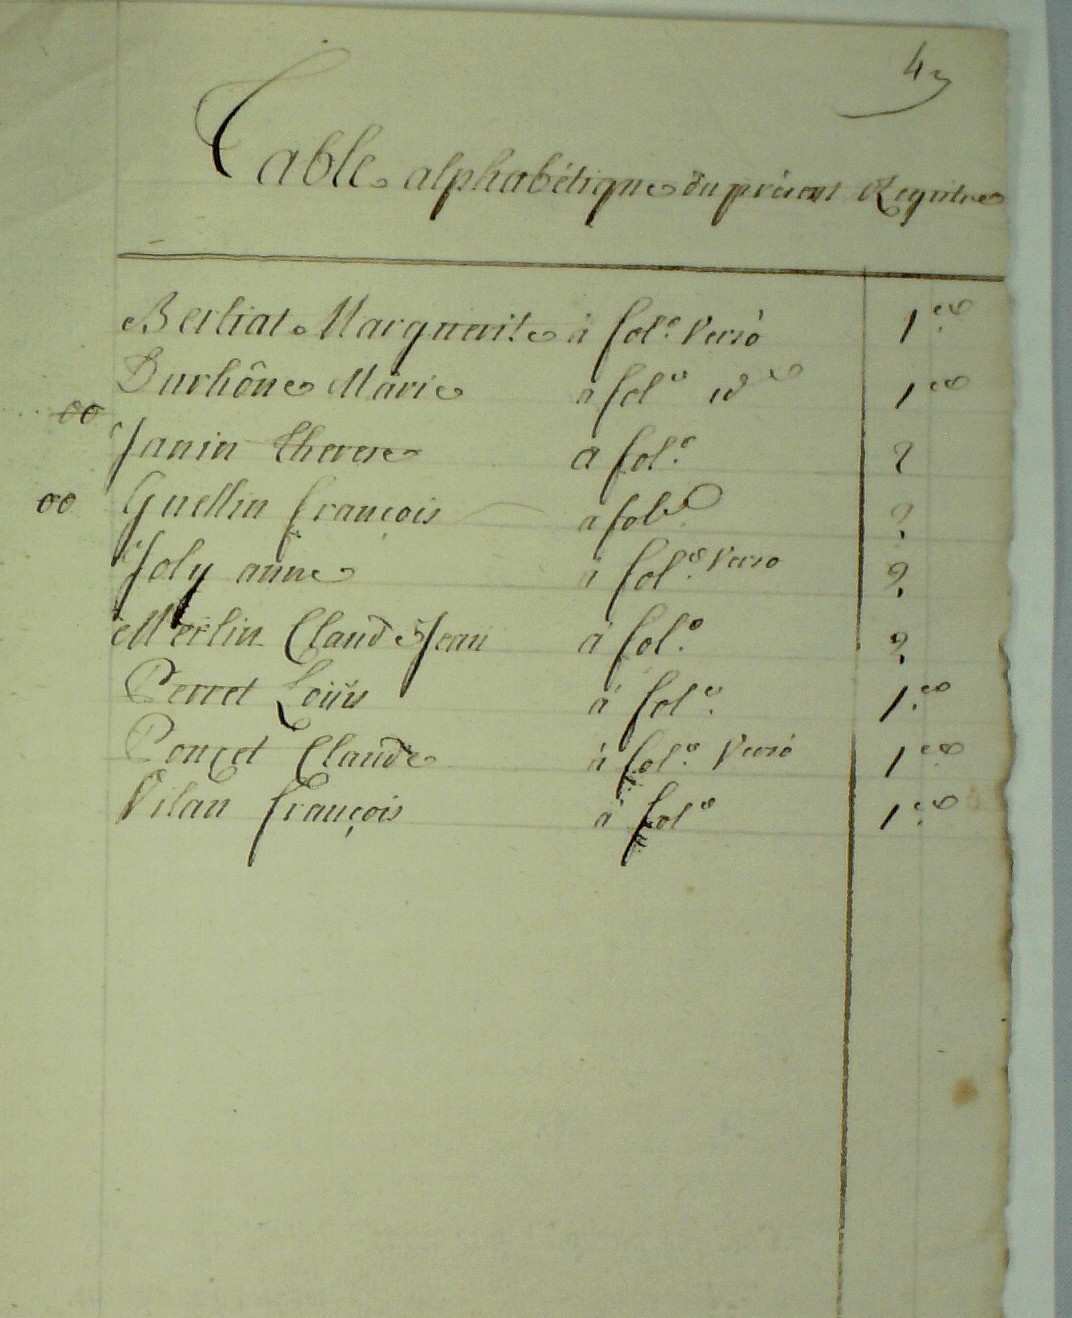 4
Table alphabétique du présent Registre
Berliat Marguerite à fol.º Verso 1.er
Durhône Marie à fol.º id 1.er
Janin Therese a fol.º 2
oo Guellin françois a fol.º 2.
Joly anne à fol.º Verso 2.
Merlin Claude Jean à fol.º 2.
Perret Loüis à fol.º 1.er
Ponçet Claude à fol.º Verso 1.er
Vilan françois à fol.º 1.er